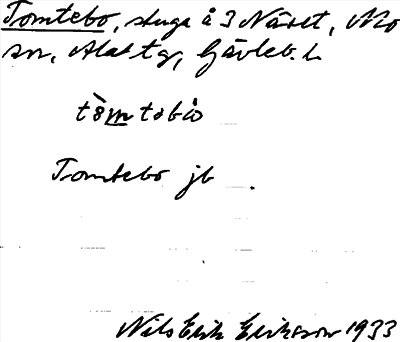 Tomtebo, stuga å 3 Näset, Mo
sn, Ala tg, Gävleb. l.
tòmtebω
Tomtebo jb
Nils Erik Erikson 1933